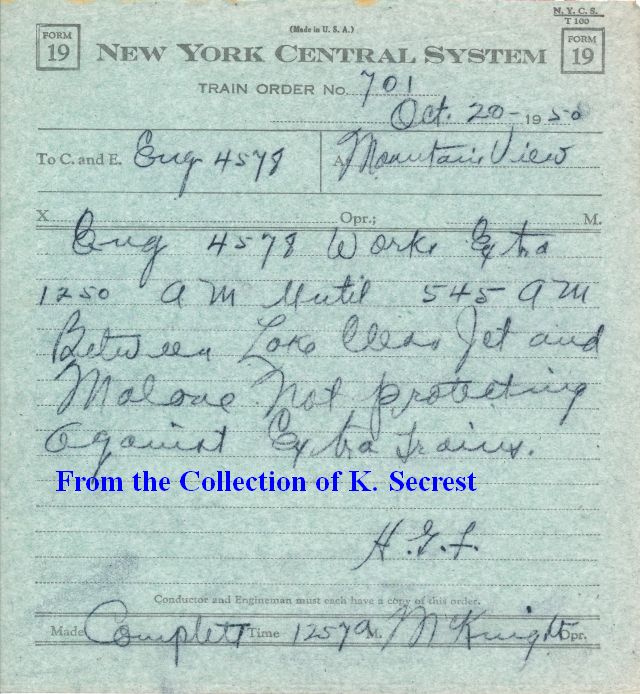 N. Y. C. S.
T 100
(Made in U. S. A.)
FORM 19
NEW YORK CENTRAL SYSTEM
FORM 19
TRAIN ORDER No. 701
Oct. 20 - 1950
To C. and E. Eng 4578 At Mountain View
X Opr.; M.
Eng 4578 Works Extra
1250 AM Until 545 AM
Between Lake Clear Jct and
Malone Not protecting
Against Extra trains.
From the Collection of K. Secrest
Conductor and Engineman must each have a copy of this order.
Made Complett Time 1257 A M. McKnight Opr.